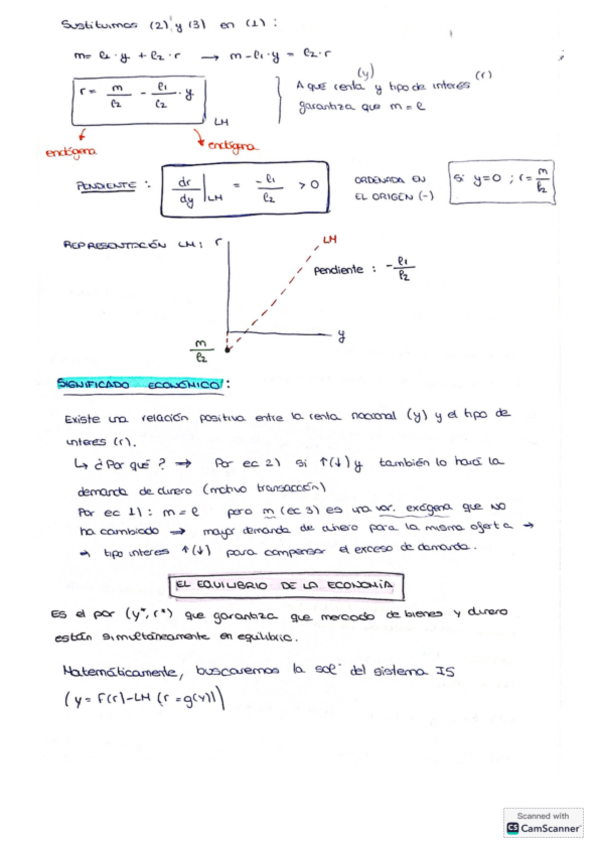 Sustituimos (2) y (3) en (1) :
m= ℓ1 · y + ℓ2 · r → m - ℓ1 · y = ℓ2 · r
r = m/ℓ2 - ℓ1/ℓ2 · y LM
A qué renta (y) y tipo de interés (r)
garantiza que m = ℓ
endógena endógena
PENDIENTE : dr/dy |LM = -ℓ1/ℓ2 > 0
ORDENADA EN
EL ORIGEN (-)
Si y=0 ; r= m/ℓ2
REPRESENTACIÓN LM : r
LM
pendiente : -ℓ1/ℓ2
y
m/ℓ2
SIGNIFICADO ECONÓMICO :
Existe una relación positiva entre la renta nacional (y) y el tipo de
interes (r).
↳ ¿Por qué ? → Por ec 2) si ↑(↓) y también lo hará la
demanda de dinero (motivo transacción)
Por ec 1) : m = ℓ pero m (ec 3) es una var. exógena que NO
ha cambiado → mayor demanda de dinero para la misma oferta →
→ tipo interes ↑(↓) para compensar el exceso de demanda.
EL EQUILIBRIO DE LA ECONOMÍA
Es el par (y*, r*) que garantiza que mercado de bienes y dinero
están simultáneamente en equilibrio.
Matemáticamente, buscaremos la sol· del sistema IS
(y = F(r)-LM (r = g(y)))
Scanned with
CS CamScanner